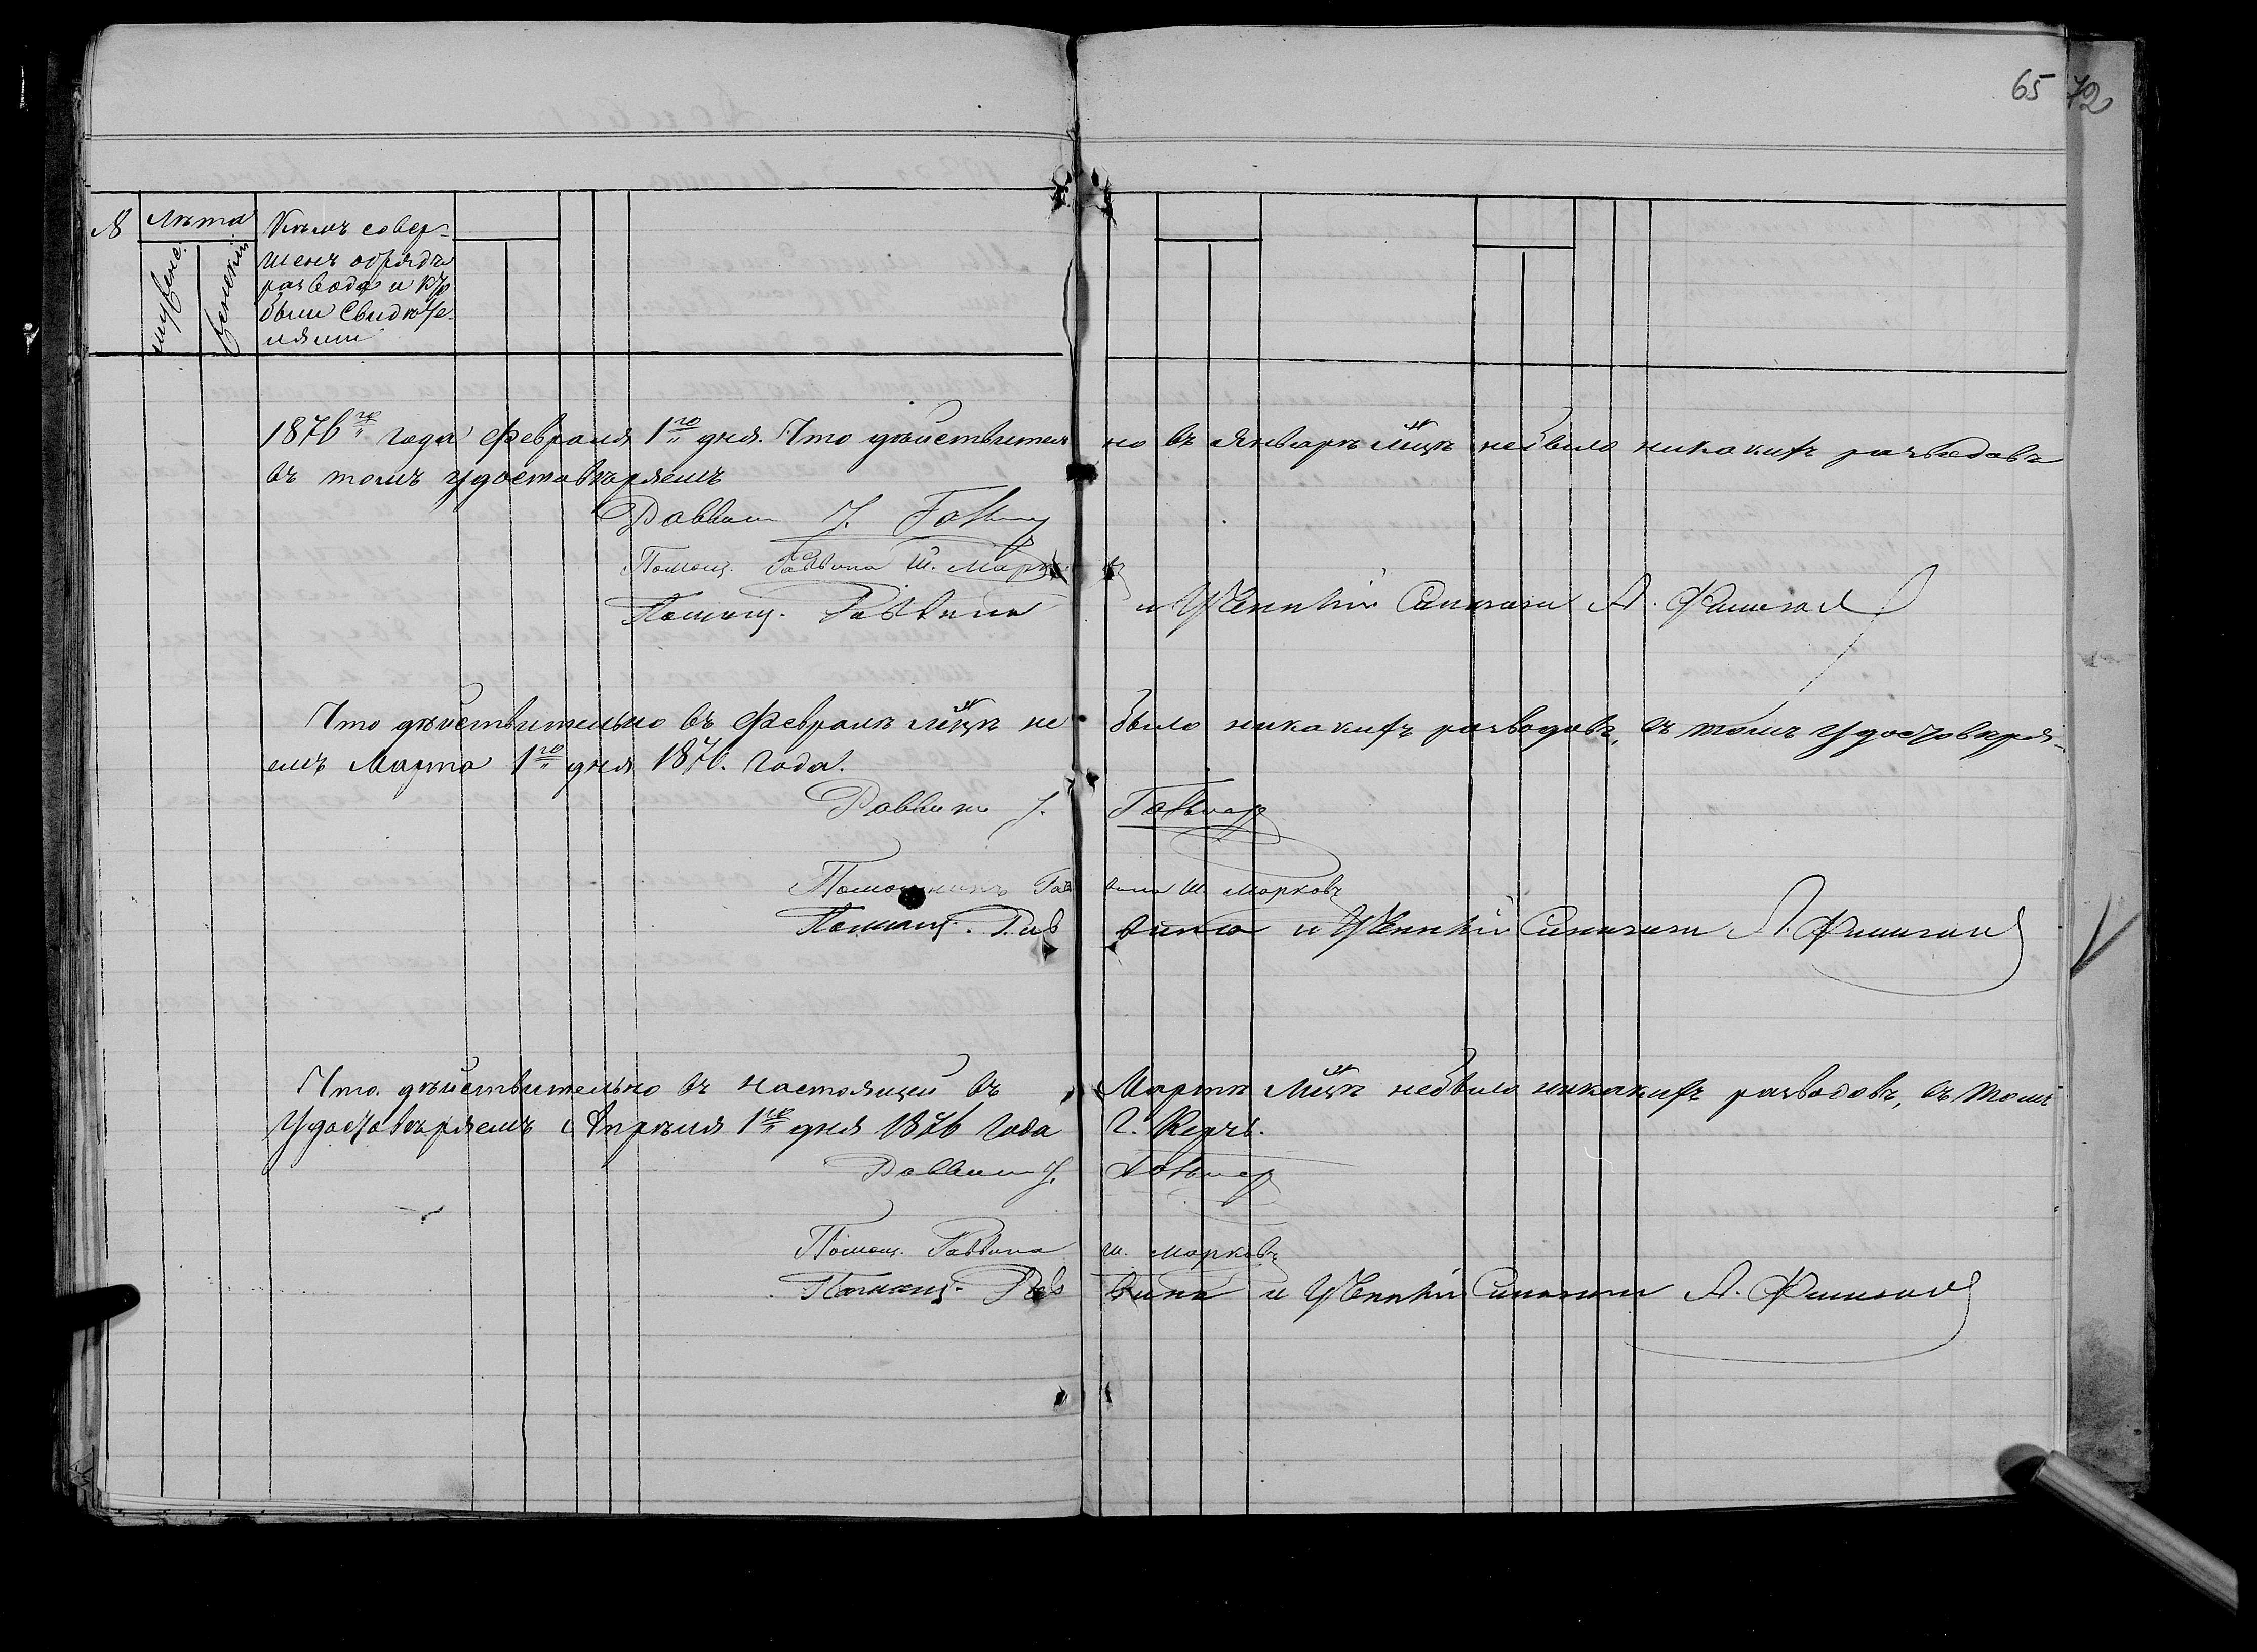 65 72
№ Лѣта Кѣмъ совер-
мужеск. женскій шенъ обрядъ
развода и кто
были свидѣте-
лями
1876го года Февраля 1го дня. Что дѣйствительно въ Январѣ м-цѣ небыло никакихъ разводовъ
въ томъ удостовѣряемъ
Раввин
Помощ. Раввина Ш. Марковъ
Помощ. Раввина и Ученный А.
Что дѣйствительно въ Февралѣ м-цѣ не было никакихъ разводовъ, въ томъ удостовѣря-
емъ Марта 1го дня 1876. года.
Раввин
Помощникъ Раввина Ш. Марковъ
Помощ. Раввина и Ученный А.
Что дѣйствительно въ настоящей въ Мартѣ м-цѣ небыло никакихъ разводовъ, въ томъ
удостовѣряемъ Апрѣля 1го дня 1876 года г. Керчь.
Раввин
Помощ. Раввина Ш. Марковъ
Помощ. Раввина и Ученный А.